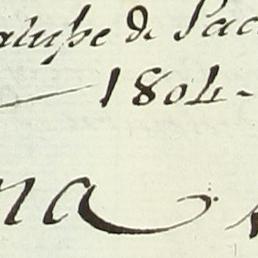 alupe de Pac
1804-
na